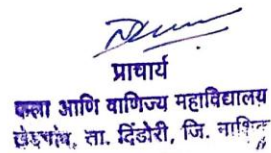 प्राचार्य
कला आणि वाणिज्य महाविद्यालय
खेडगांव, ता. दिंडोरी, जि. नाशिक